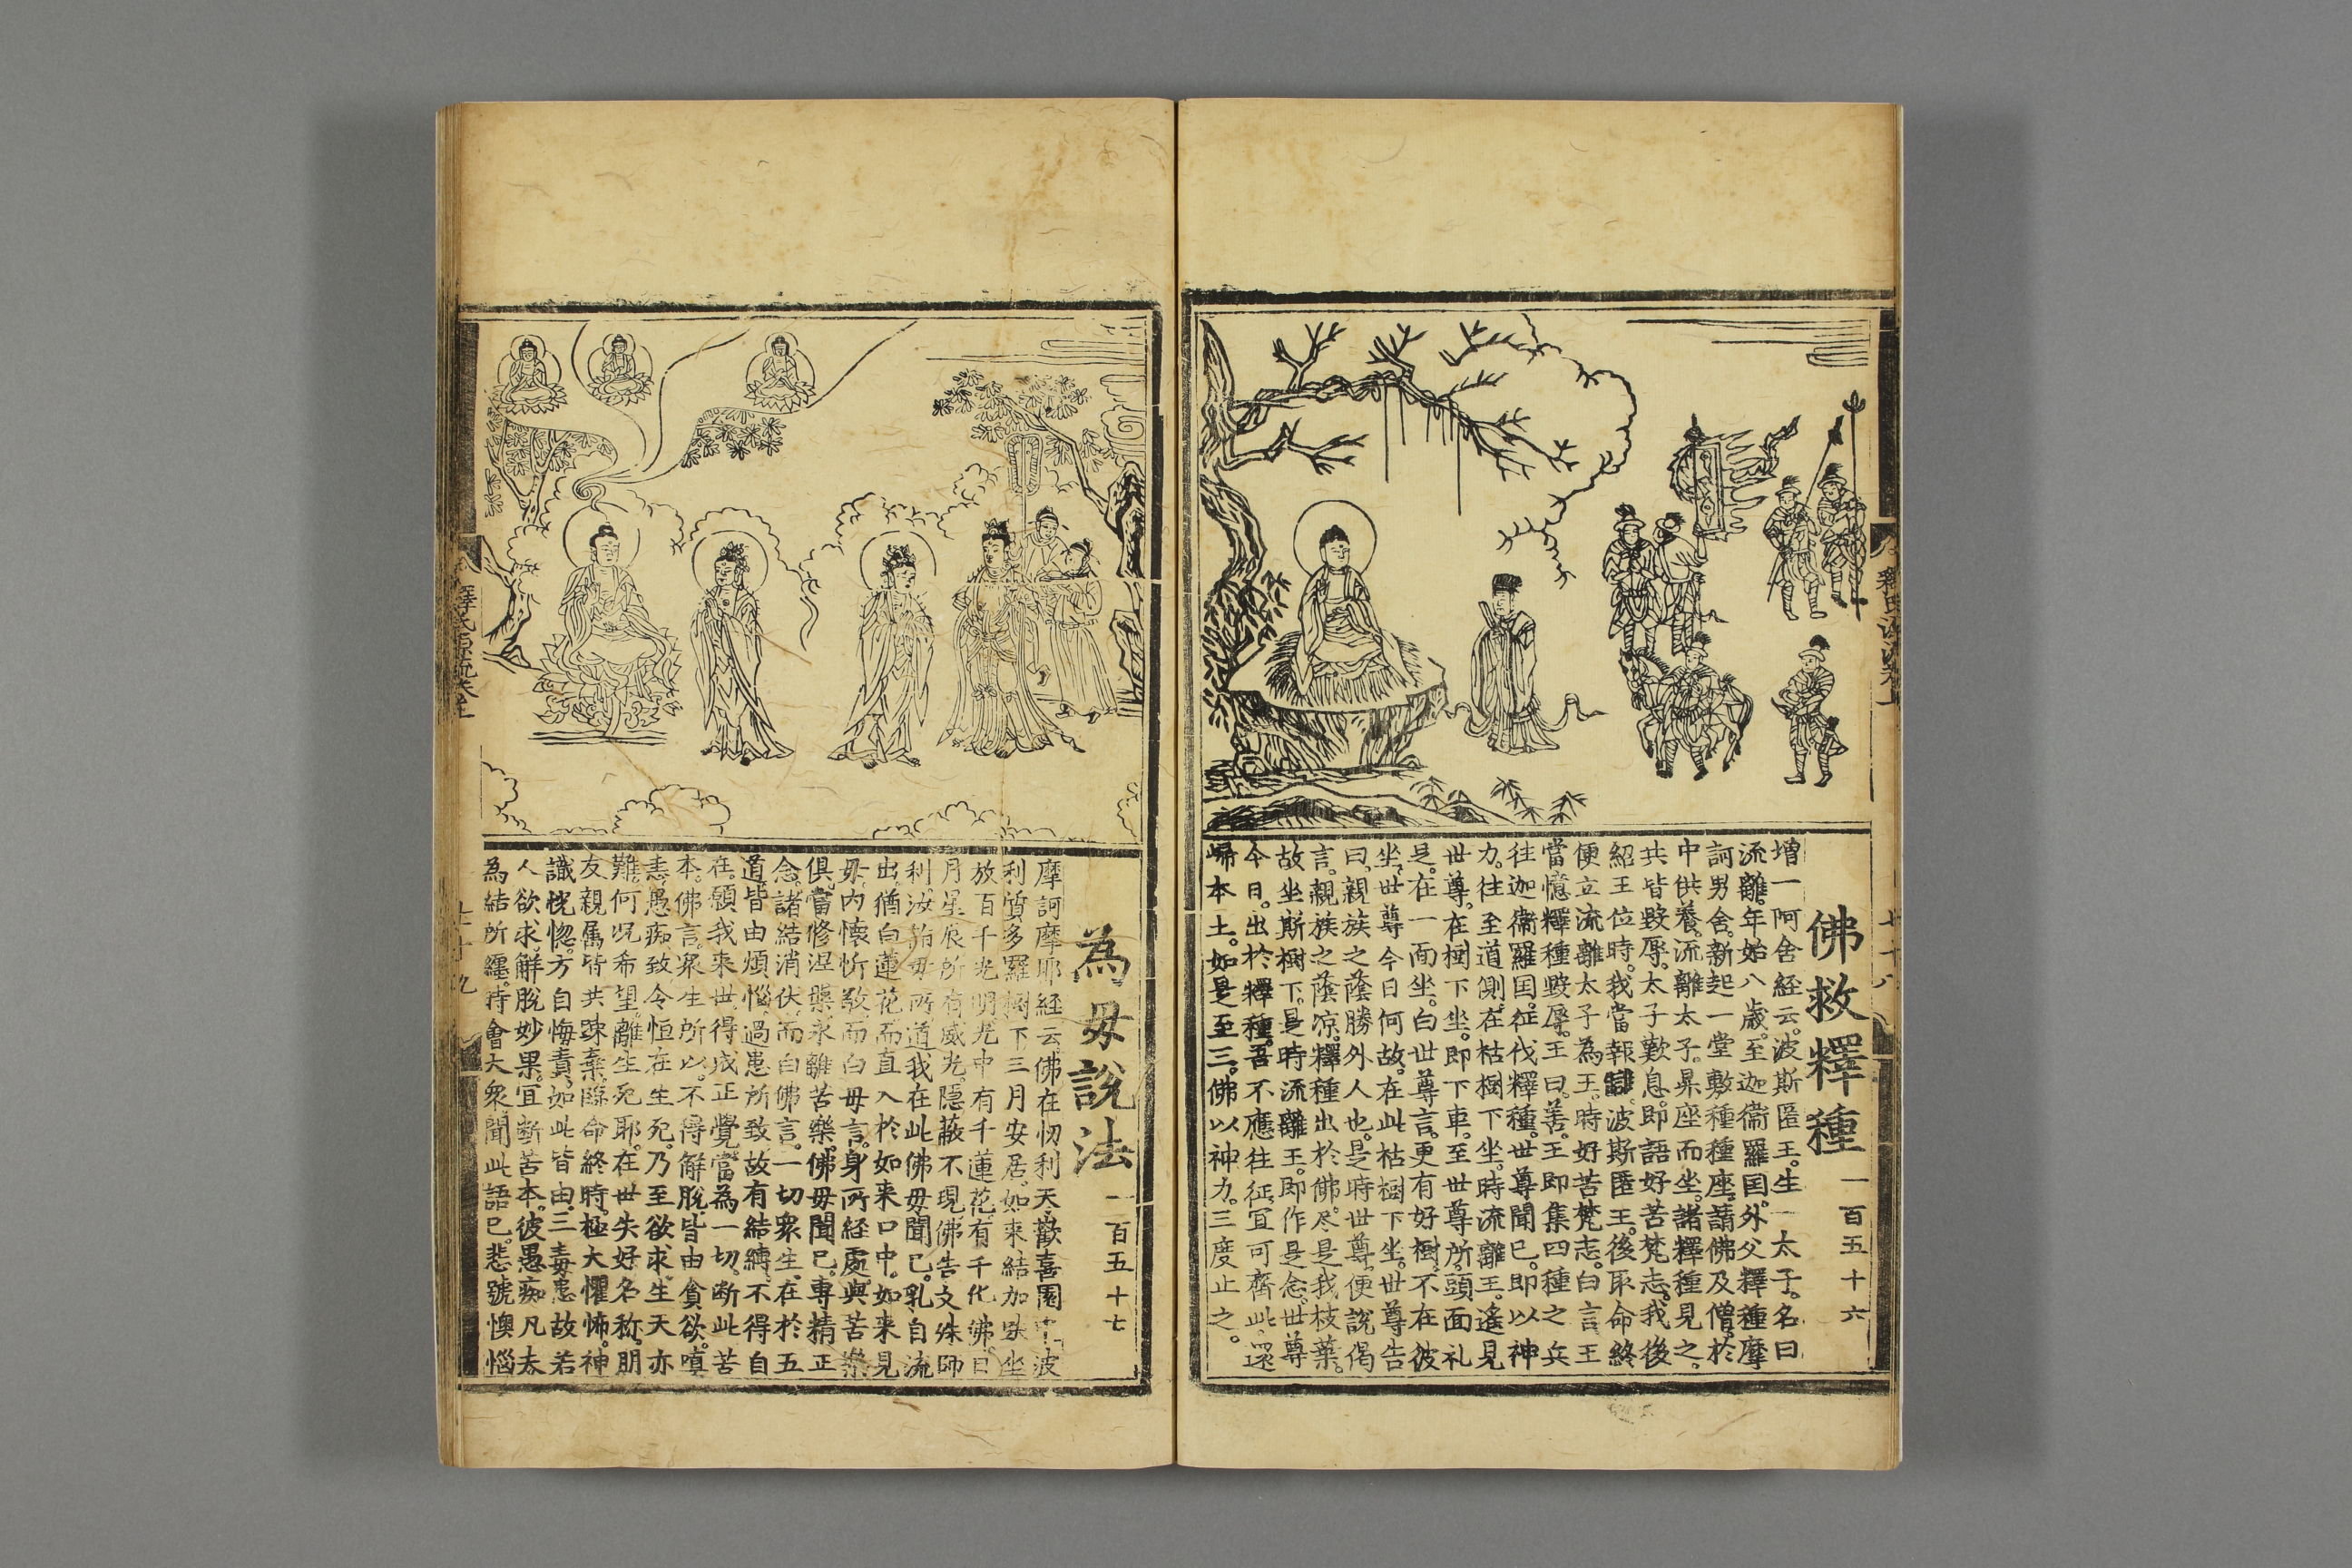 佛救釋種
一百五十六
增一阿舍経云。波斯匿王。生一太子。名曰
流離。年始八歲。至迦衞羅囯。外父釋種摩
訶男舍。新起一堂。敷種種座。請佛及僧。於
中供養。流離太子。昇座而坐。諸釋種見之。
共皆毀辱。太子歎息。即語好苦梵志。我後
紹王位時。我當報讎。波斯匿王。後取命終
便立流離太子為王。時好苦梵志。白言王
當憶釋種毀辱。王曰。善。王即集四種之兵
往迦衞羅囯。征伐釋種。世尊聞已。即以神
力。往至道側。在枯樹下坐。時流離王。遙見
世尊。在樹下坐。即下車。至世尊所。頭面礼
是。在一面坐。白世尊言。更有好樹。不在彼
坐。世尊今日何故。在此枯樹下坐。世尊告
曰。親族之蔭。勝外人也。是時世尊。便說偈
言。親族之蔭凉。釋種出於佛。尽是我枝葉。
故坐斯樹下。是時流離王。即作是念。世尊
今日。出於釋種。吾不應往征。宜可齊此。還
歸本土。如是至三。佛以神力。三度止之。
為毋說法
一百五十七
摩訶摩耶経云。佛在忉利天。歡喜園中。波
利質多羅樹下三月安居。如来結加趺坐
放百千光明。光中有千蓮花。有千化佛。日
月星辰所有威光。隱蔽不現。佛告文殊師
利。汝詣毋所。道我在此。佛毋聞已。乳自流
出。猶白蓮花。而直入於如来口中。如来見
毋。内懐忻敬。而白毋言。身所経處。與苦樂
俱。當修涅槃。永離苦樂。佛毋聞已。專精正
念。諸結消伏。而白佛言。一切衆生。在於五
道。皆由煩惱。過患所致。故有結縛。不得自
在。願我来世。得成正覺。當為一切。断此苦
本。佛言。衆生所以。不得解脫。皆由貪欲。嗔
恚。愚痴。致令恒在生死。乃至欲求。生天亦
難。何况希望。離生死耶。在世失好名称。朋
友親属。皆共踈棄。臨命終時。極大懼怖。神
識恍惚。方自悔責。如此皆由。三毒患故。若
人欲求。解脫妙果。宜断苦本。彼愚痴凡夫
為結所纏。時會大衆。聞此語已。悲號懊惱